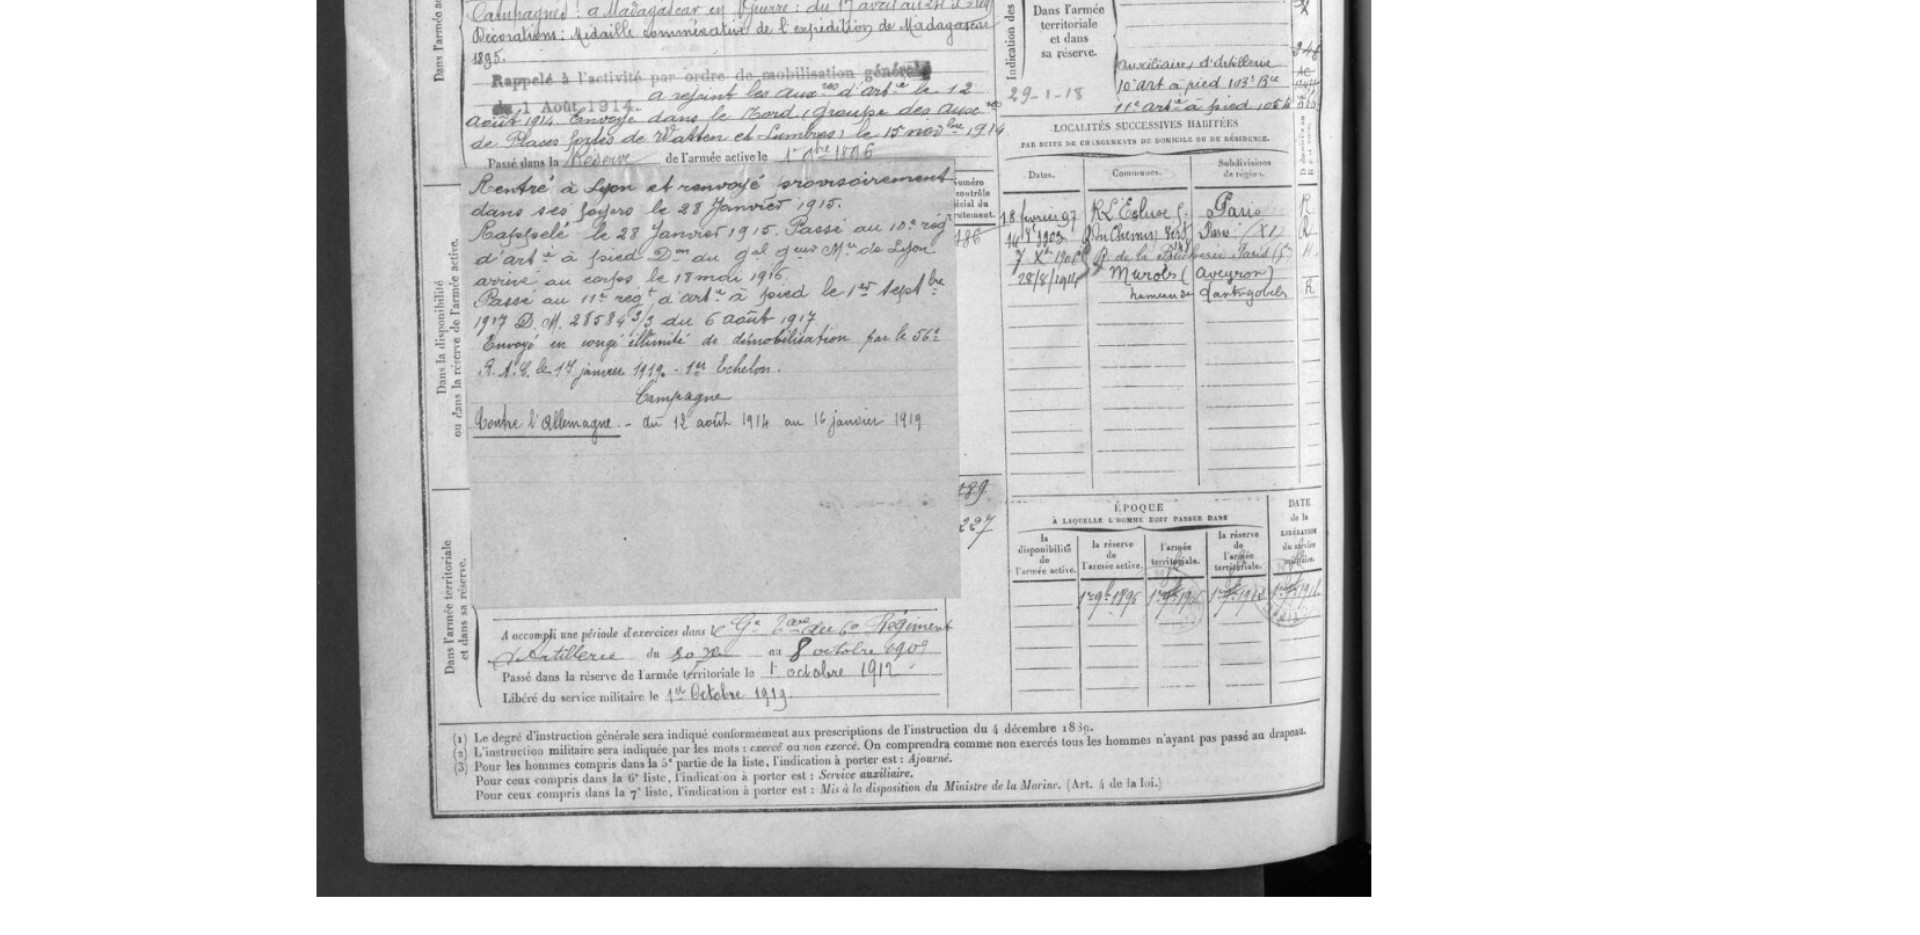 Dans l'armée ac
Campagnes : a Madagascar en Guerre : du 17 avril au
Décorations : Médaille commérative de l'expédition de Madagascar
1895.
Rappelé à l'activité par ordre de mobilisation générale
du 1 Août 1914. a rejoint les auxres d'artie le 12
août 1914. Envoyé dans le Nord (Groupe des auxres
de Places fortes de Watten et Lumbres) le 15 novbre 1914
Passé dans la Réserve de l'armée active le 1er 9bre 1896
Dans la disponibilité
ou dans la réserve de l'armée active.
Rentré à Lyon et renvoyé provisoirement
dans ses foyers le 28 Janvier 1915.
Rappelé le 28 Janvier 1915. Passé au 10e rég
d'artie à pied Don du gal gouv Mre de Lyon
arrivé au corps le 18 mai 1916.
Passé au 11e régt d'artie à pied le 1er Septbre
1917 D. M. 28584 3/3 du 6 août 1917
Envoyé en congé illimité de démobilisation par le 56e
R.A.C. le 17 janvier 1919. - 1er Echelon.
Campagne
Contre l'Allemagne. - du 12 août 1914 au 16 janvier 1919
Numéro
contrôle
écial du
rutement.
186
189
227
Dans l'armée territoriale
et dans sa réserve.
A accompli une période d'exercices dans le Ge du 6e Régiment
d'Artillerie du 30 au 8 octobre 1909
Passé dans la réserve de l'armée territoriale le 1 octobre 1912
Libéré du service militaire le 1er Octobre 1919.
Indication des
Dans l'armée
territoriale
et dans
sa réserve.
29-1-18
auxiliaires d'artillerie
10e art à pied 103e Bie
11e artie à pied
LOCALITÉS SUCCESSIVES HABITÉES
PAR SUITE DE CHANGEMENTS DE DOMICILE OU DE RÉSIDENCE.
Dates. Communes. Subdivisions de région.
18 février 97 R. L'Ecluse Paris R
1903 R du Chemin Vert Paris (XI) R
7 Xbre 1906 R. de la Paris (5)
28/8/1914 Murols (Aveyron)
hameau de R
ÉPOQUE
À LAQUELLE L'HOMME DOIT PASSER DANS
DATE
de la
LIBÉRATION
du service
militaire.
la
disponibilité
de
l'armée active.
la réserve
de
l'armée active.
l'armée
territoriale.
la réserve
de
l'armée
territoriale.
1er 9bre 1896
(1) Le degré d'instruction générale sera indiqué conformément aux prescriptions de l'instruction du 4 décembre 1889.
(2) L'instruction militaire sera indiquée par les mots : exercé ou non exercé. On comprendra comme non exercés tous les hommes n'ayant pas passé au drapeau.
(3) Pour les hommes compris dans la 5e partie de la liste, l'indication à porter est : Ajourné.
Pour ceux compris dans la 6e liste, l'indication à porter est : Service auxiliaire.
Pour ceux compris dans la 7e liste, l'indication à porter est : Mis à la disposition du Ministre de la Marine. (Art. 4 de la loi.)